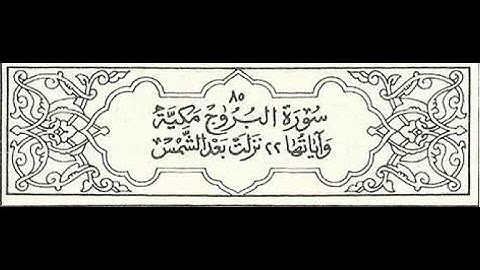 ٨٥
سُورَةُ البُرُوجِ مَكِيَّةٌ
وَآيَاتُهَا ٢٢ نَزَلَتْ بَعْدَ الشَّمْسِ